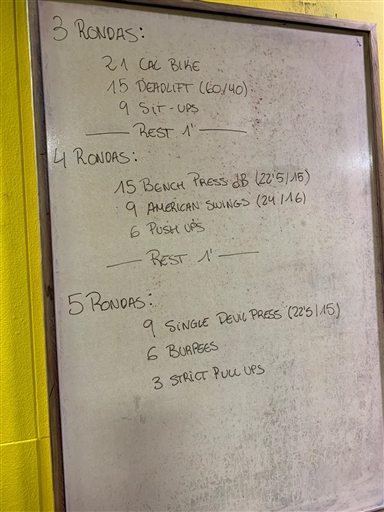 3 RONDAS:
21 CAL BIKE
15 DEADLIFT (60/40)
9 SIT-UPS
REST 1'
4 RONDAS:
15 BENCH PRESS dB (22'5/15)
9 AMERICAN SWINGS (24/16)
6 PUSH UPS
REST 1'
5 RONDAS:
9 SINGLE DEVIL PRESS (22'5/15)
6 BURPEES
3 STRICT PULL UPS